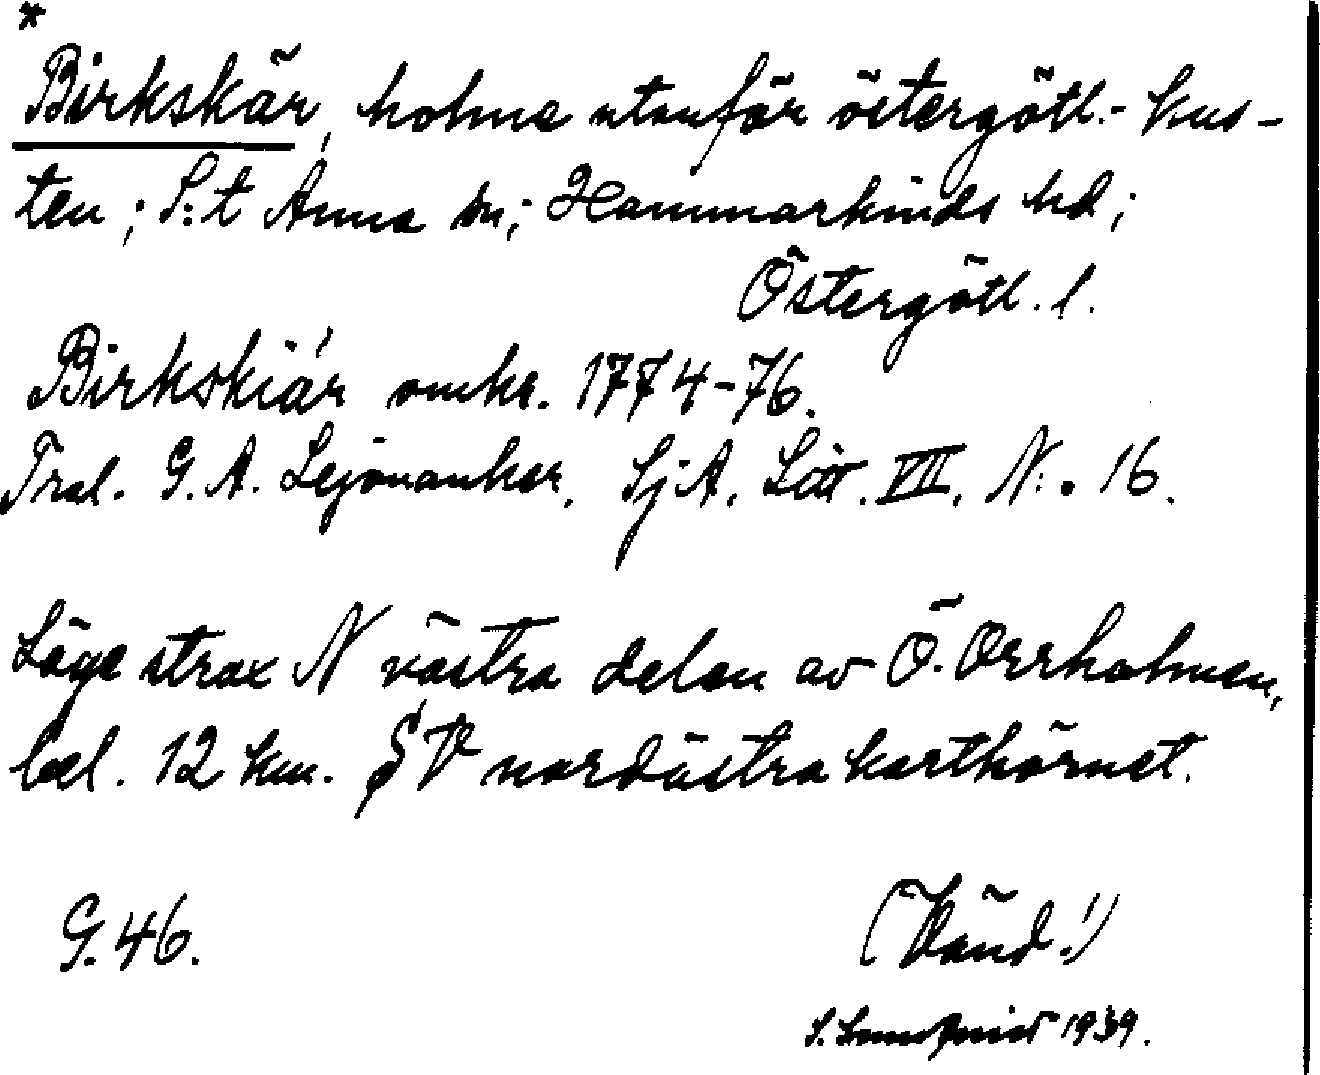 *
Birkskär, holme utanför östergötl.- kus-
ten; S:t Anna sn; Hammarkinds hd;
Östergötl. l.
Birkskiär omkr. 1774-76.
Tral. G. A. Lejonanker, SjA, Litt. VII, N:o 16.
Läge strax N västra delen av Ö. Orrholmen,
bel. 12 km. SV nordöstra karthörnet.
G. 46.
(Vänd!)
S. 1939.